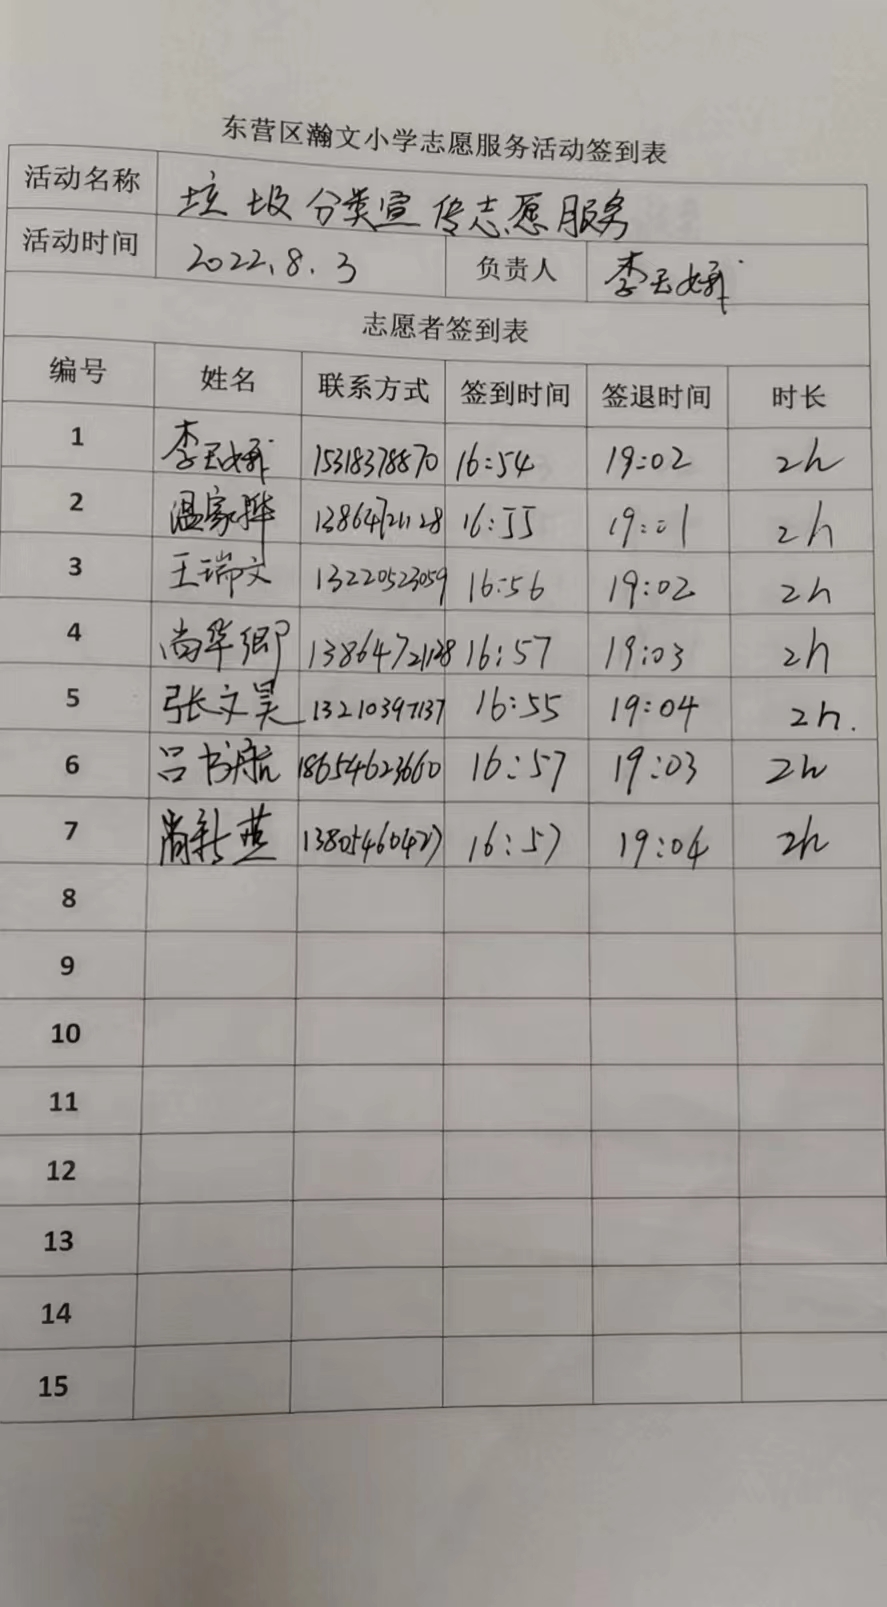 东营区瀚文小学志愿服务活动签到表
活动名称 垃圾分类宣传志愿服务
活动时间 2022.8.3 负责人 李玉
志愿者签到表
编号 姓名 联系方式 签到时间 签退时间 时长
1 李玉 15318378870 16:54 19:02 2h
2 温家骅 13864721128 16:55 19:01 2h
3 王瑞文 13220523059 16:56 19:02 2h
4 尚华卿 13864721128 16:57 19:03 2h
5 张文昊 13210397137 16:55 19:04 2h.
6 吕书航 18654623660 16:57 19:03 2h
7 尚新燕 13805460427 16:57 19:04 2h
8
9
10
11
12
13
14
15